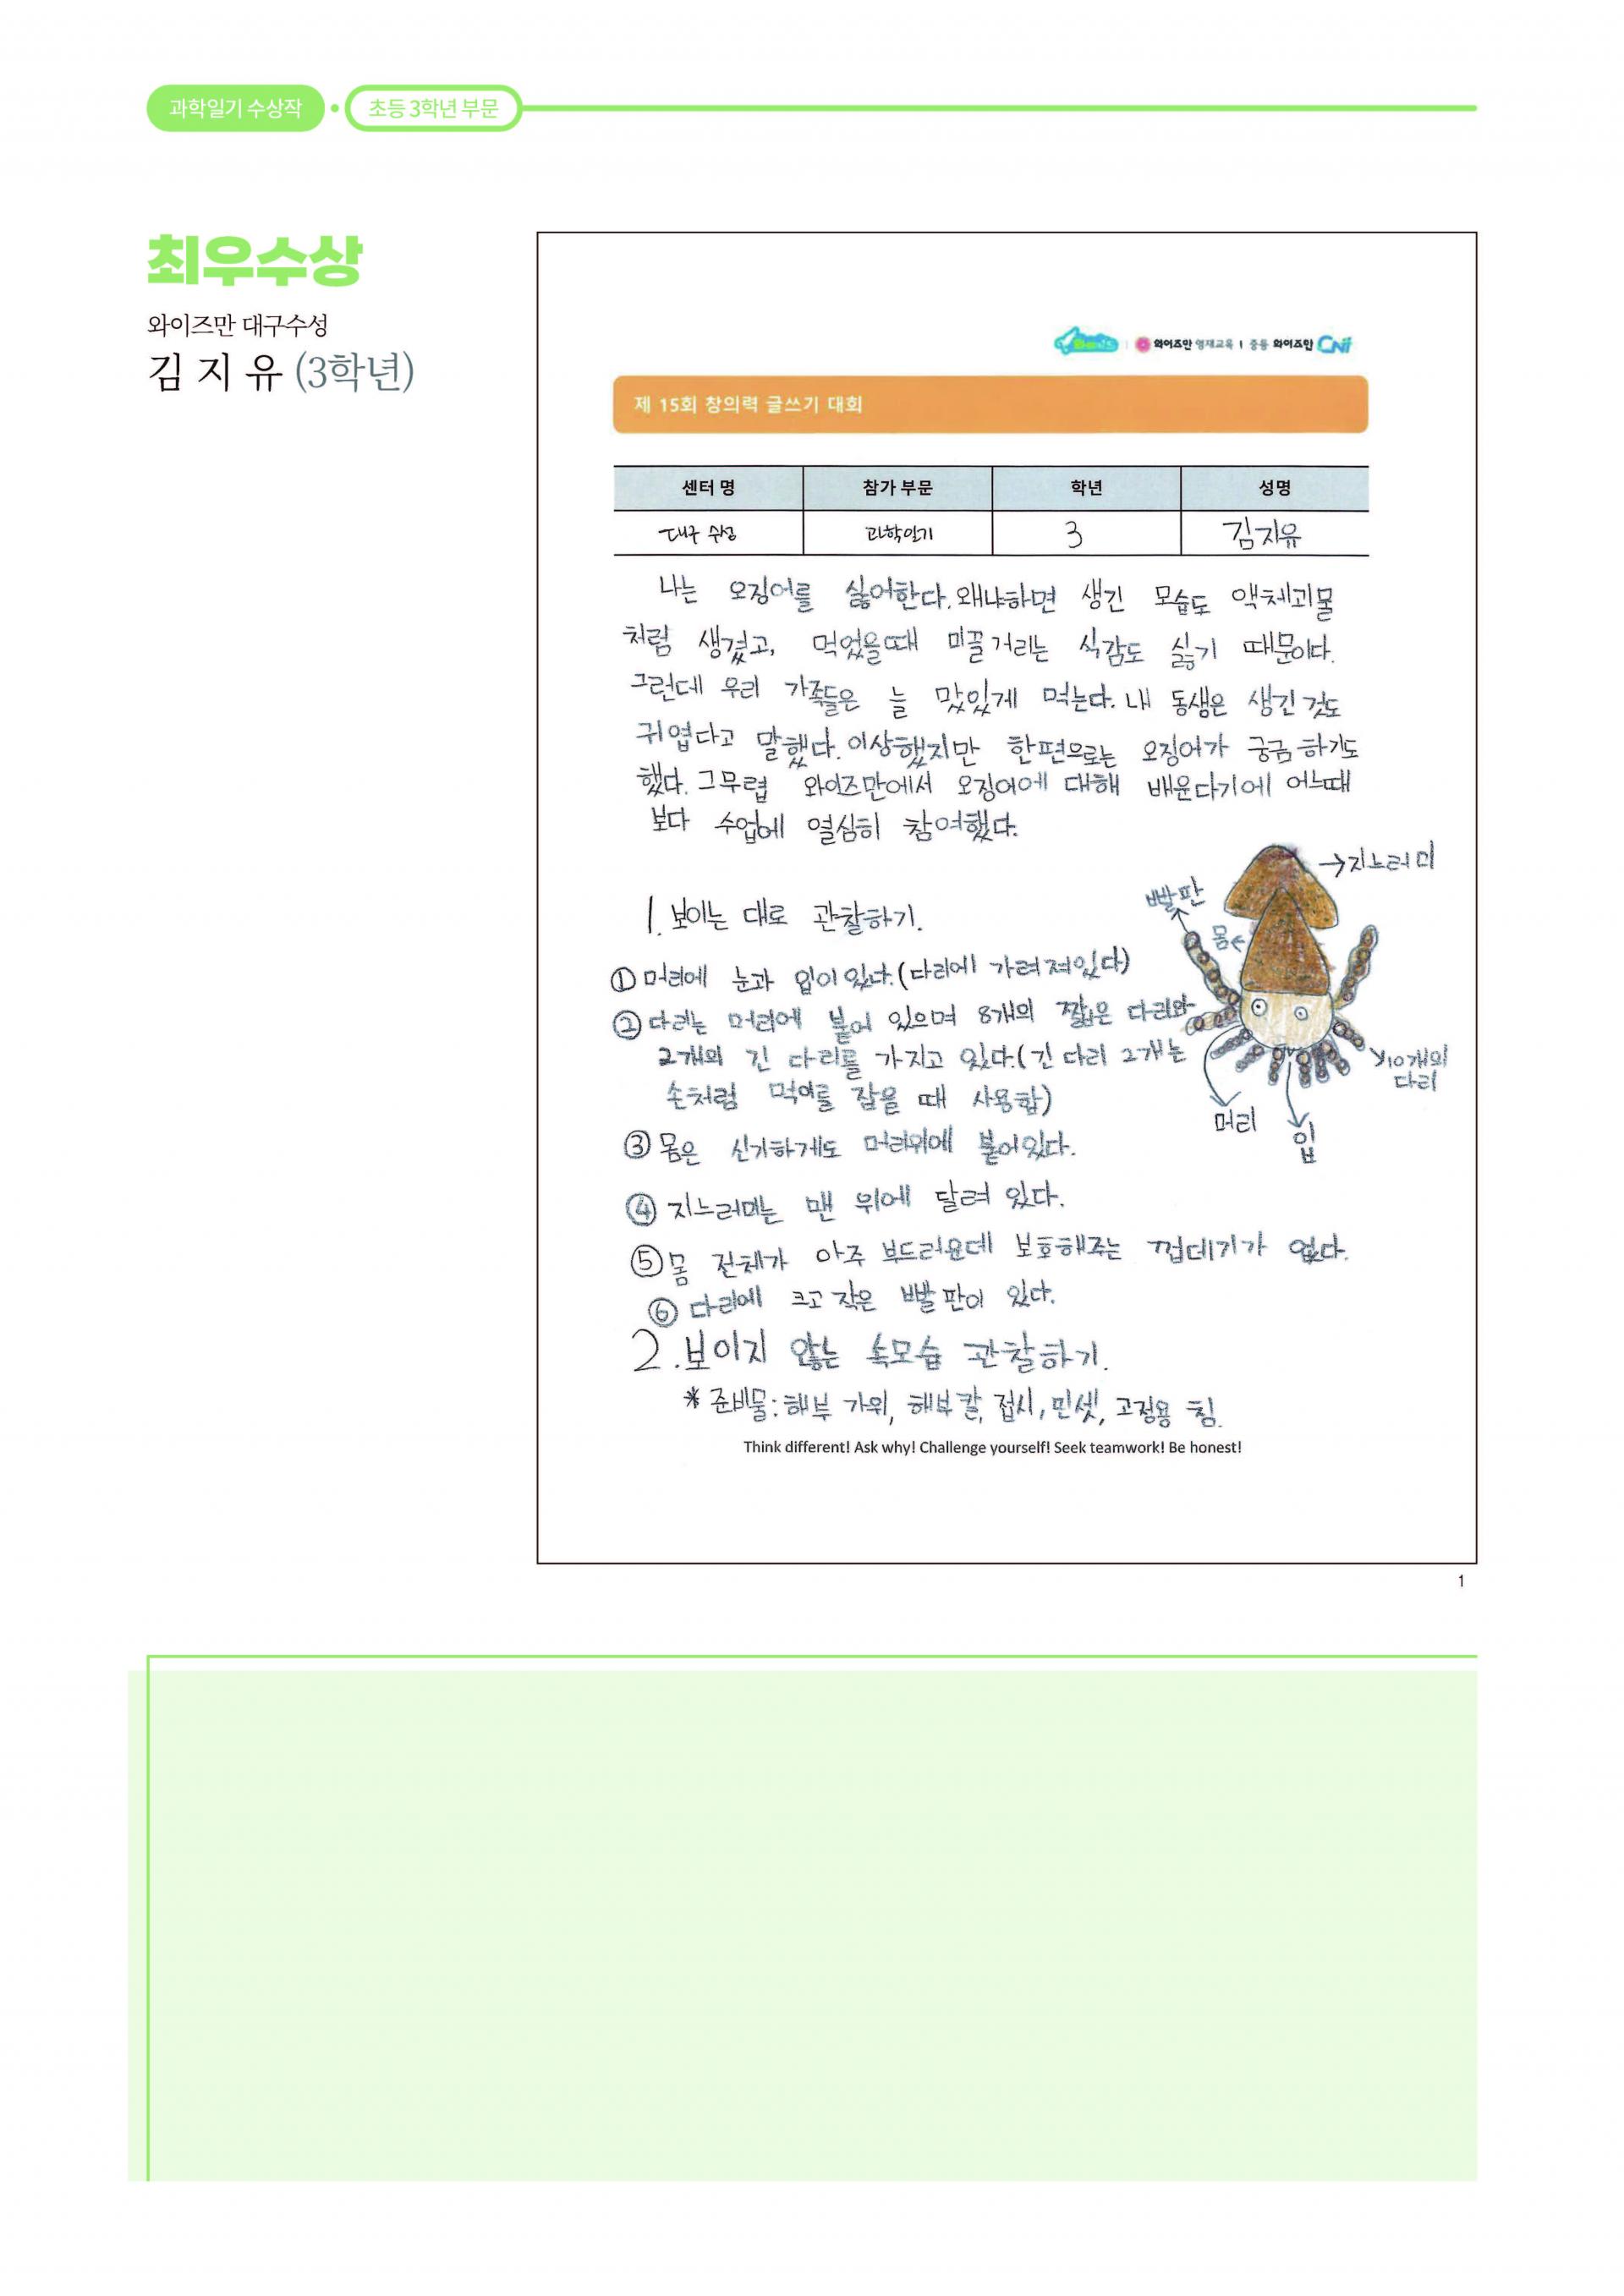 과학일기 수상작 • 초등 3학년 부문
최우수상
와이즈만 대구수성
김 지 유 (3학년)
와이즈만 영재교육 | 중등 와이즈만 CNI
제 15회 창의력 글쓰기 대회
센터 명 참가 부문 학년 성명
대구 수성 과학일기 3 김지유
나는 오징어를 싫어한다. 왜냐하면 생긴 모습도 액체괴물
처럼 생겼고, 먹었을때 미끌거리는 식감도 싫기 때문이다.
그런데 우리 가족들은 늘 맜있게 먹는다. 내 동생은 생긴 것도
귀엽다고 말했다. 이상했지만 한편으로는 오징어가 궁금하기도
했다. 그무렵 와이즈만에서 오징어에 대해 배운다기에 어느때
보다 수업에 열심히 참여했다.
1. 보이는 대로 관찰하기.
① 머리에 눈과 입이 있다. (다리에 가려져있다)
② 다리는 머리에 붙어 있으며 8개의 짧은 다리와
2개의 긴 다리를 가지고 있다. (긴 다리 2개는
손처럼 먹이를 잡을 때 사용함)
③ 몸은 신기하게도 머리위에 붙어있다.
④ 지느러미는 맨 위에 달려 있다.
⑤ 몸 전체가 아주 부드러운데 보호해주는 껍데기가 없다.
⑥ 다리에 크고 작은 빨판이 있다.
→지느러미
빨판
몸←
10개의
다리
머리
입
2. 보이지 않는 속모습 관찰하기.
* 준비물: 해부 가위, 해부 칼, 접시, 핀셋, 고정용 침.
Think different! Ask why! Challenge yourself! Seek teamwork! Be honest!
1